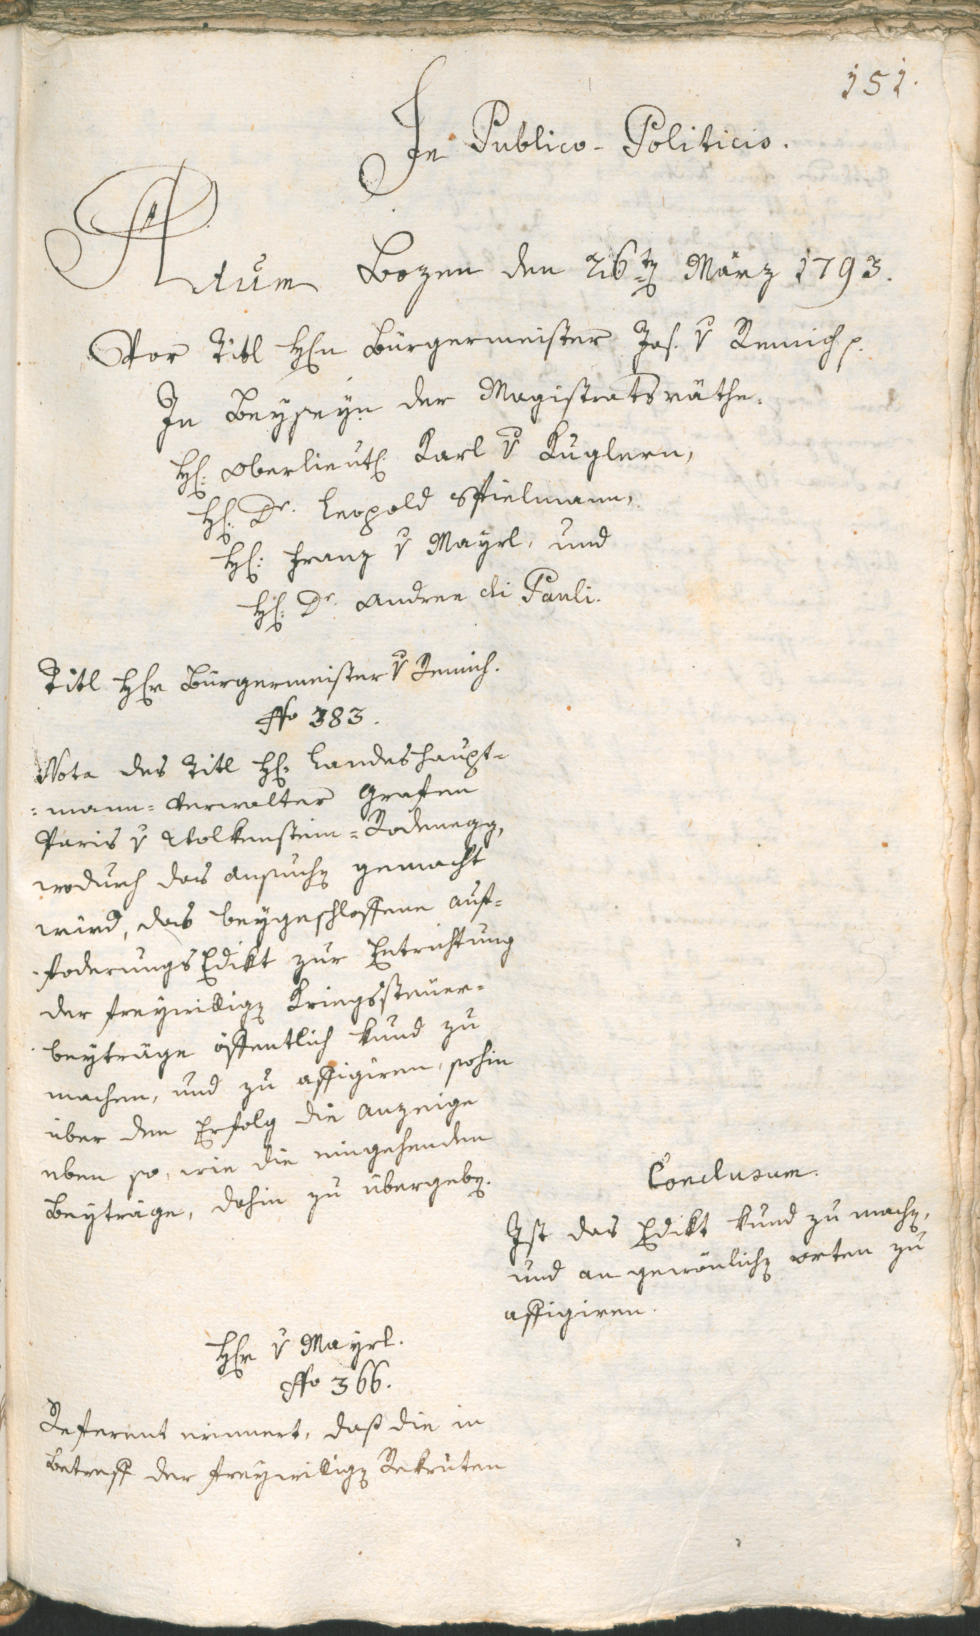 151.
In Publico-Politicis.
Actum Bozen den 26ten März 1793.
Vor Titl Hrn Bürgermeister Jos. v Remich p.
In Beyseyn der Magistratsräthe.
H: Oberlieut: Karl v Kuglern,
H: Dr. Leopold Spielmann,
H: Franz v Mayrl, und
H: Dr. Andree di Pauli.
Titl Hr Bürgermeister v Remich.
No 383.
Nota des Titl H: Landeshaupt-
=mann-Verwalter Grafen
Paris v Wolkenstein=Rodenegg,
wodurch das Ansuchen gemacht
wird, das beygeschlossene Auf-
foderungs Edikt zur Entrichtung
der freywilligen Kriegssteuer-
beyträge öffentlich kund zu
machen, und zu affigiren, sohin
über den Erfolg die Anzeige
eben so, wie die eingehenden
Beyträge, dahin zu übergeben.
Conclusum.
Ist das Edikt kund zu machen,
und an gewönlichen Orten zu
affigiren.
Hr v Mayrl.
No 366.
Referent erinnert, daß die in
Betreff der freywilligen Rekruten